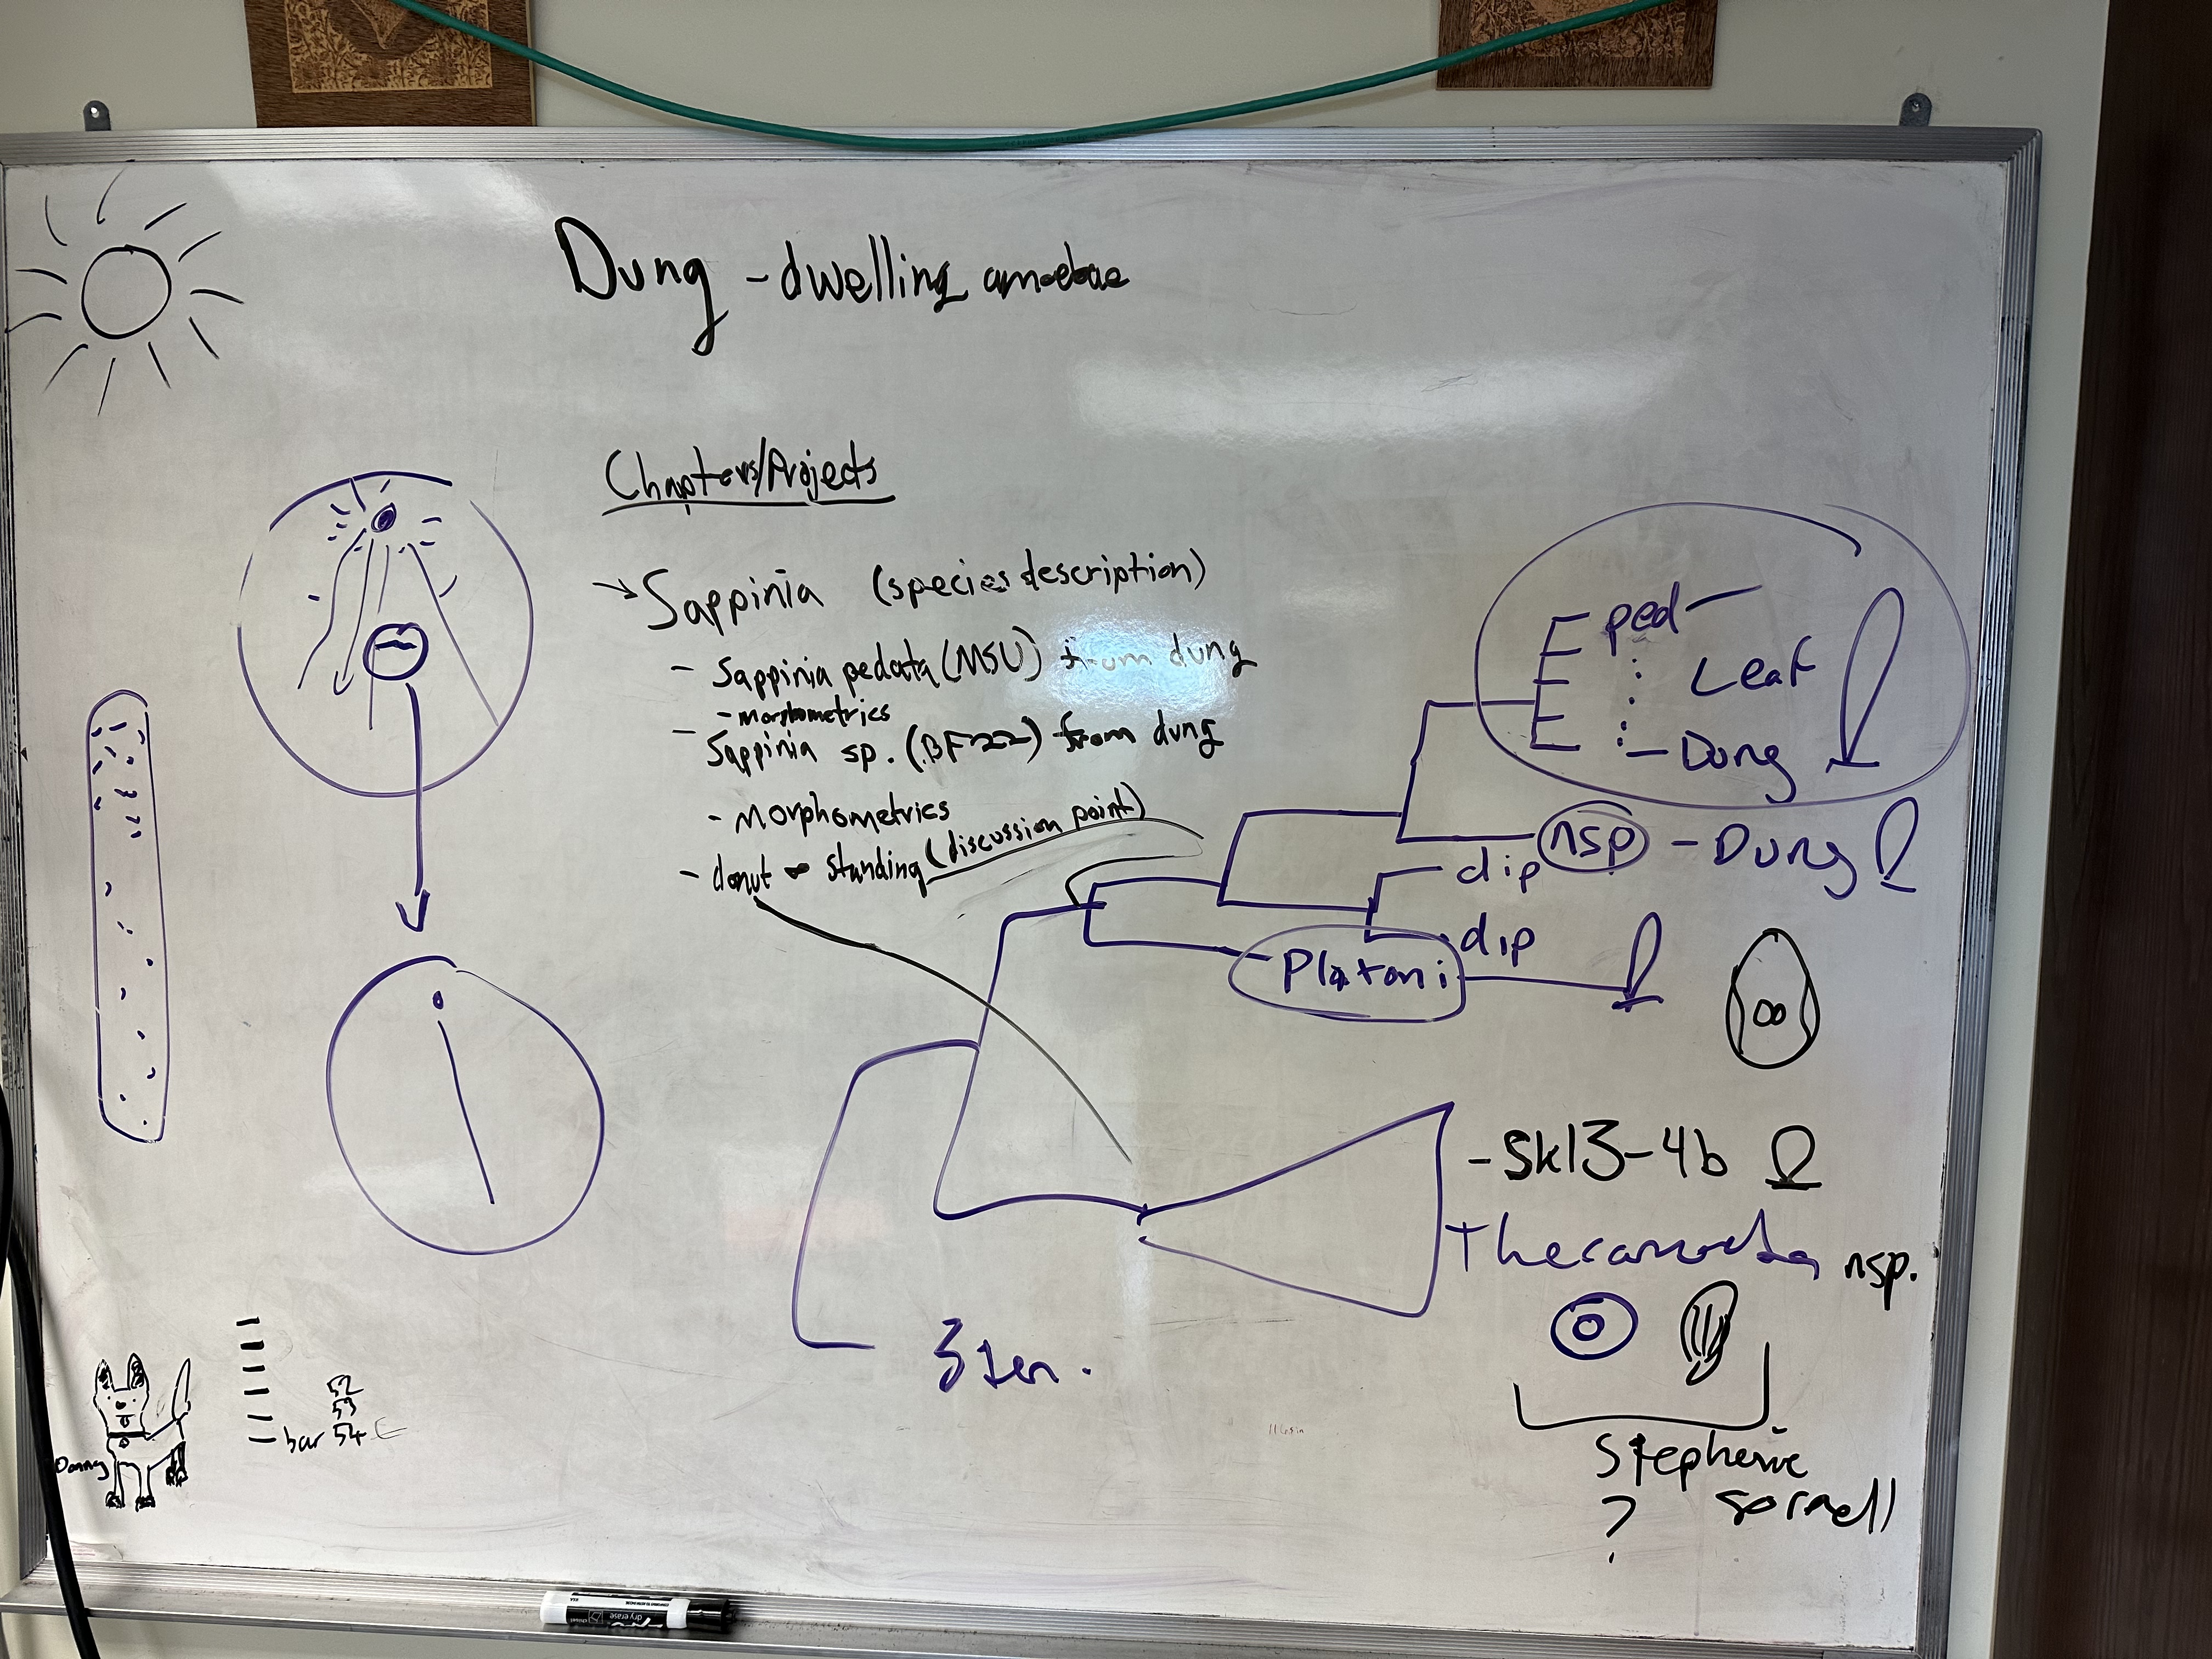 Dung - dwelling amoebae
Chapters/Projects
→ Sappinia (species description)
- Sappinia pedata (MSU) from dung
- morphometrics
- Sappinia sp. (BF22) from dung
- morphometrics
- donut standing (discussion point)
ped
Leaf
- Dung
nsp - Dung
dip
dip
Platani
- Sk13-4b
Thecamoeba nsp.
Sten.
Stephenie
?
52
53
bar 54
Danny
dry erase